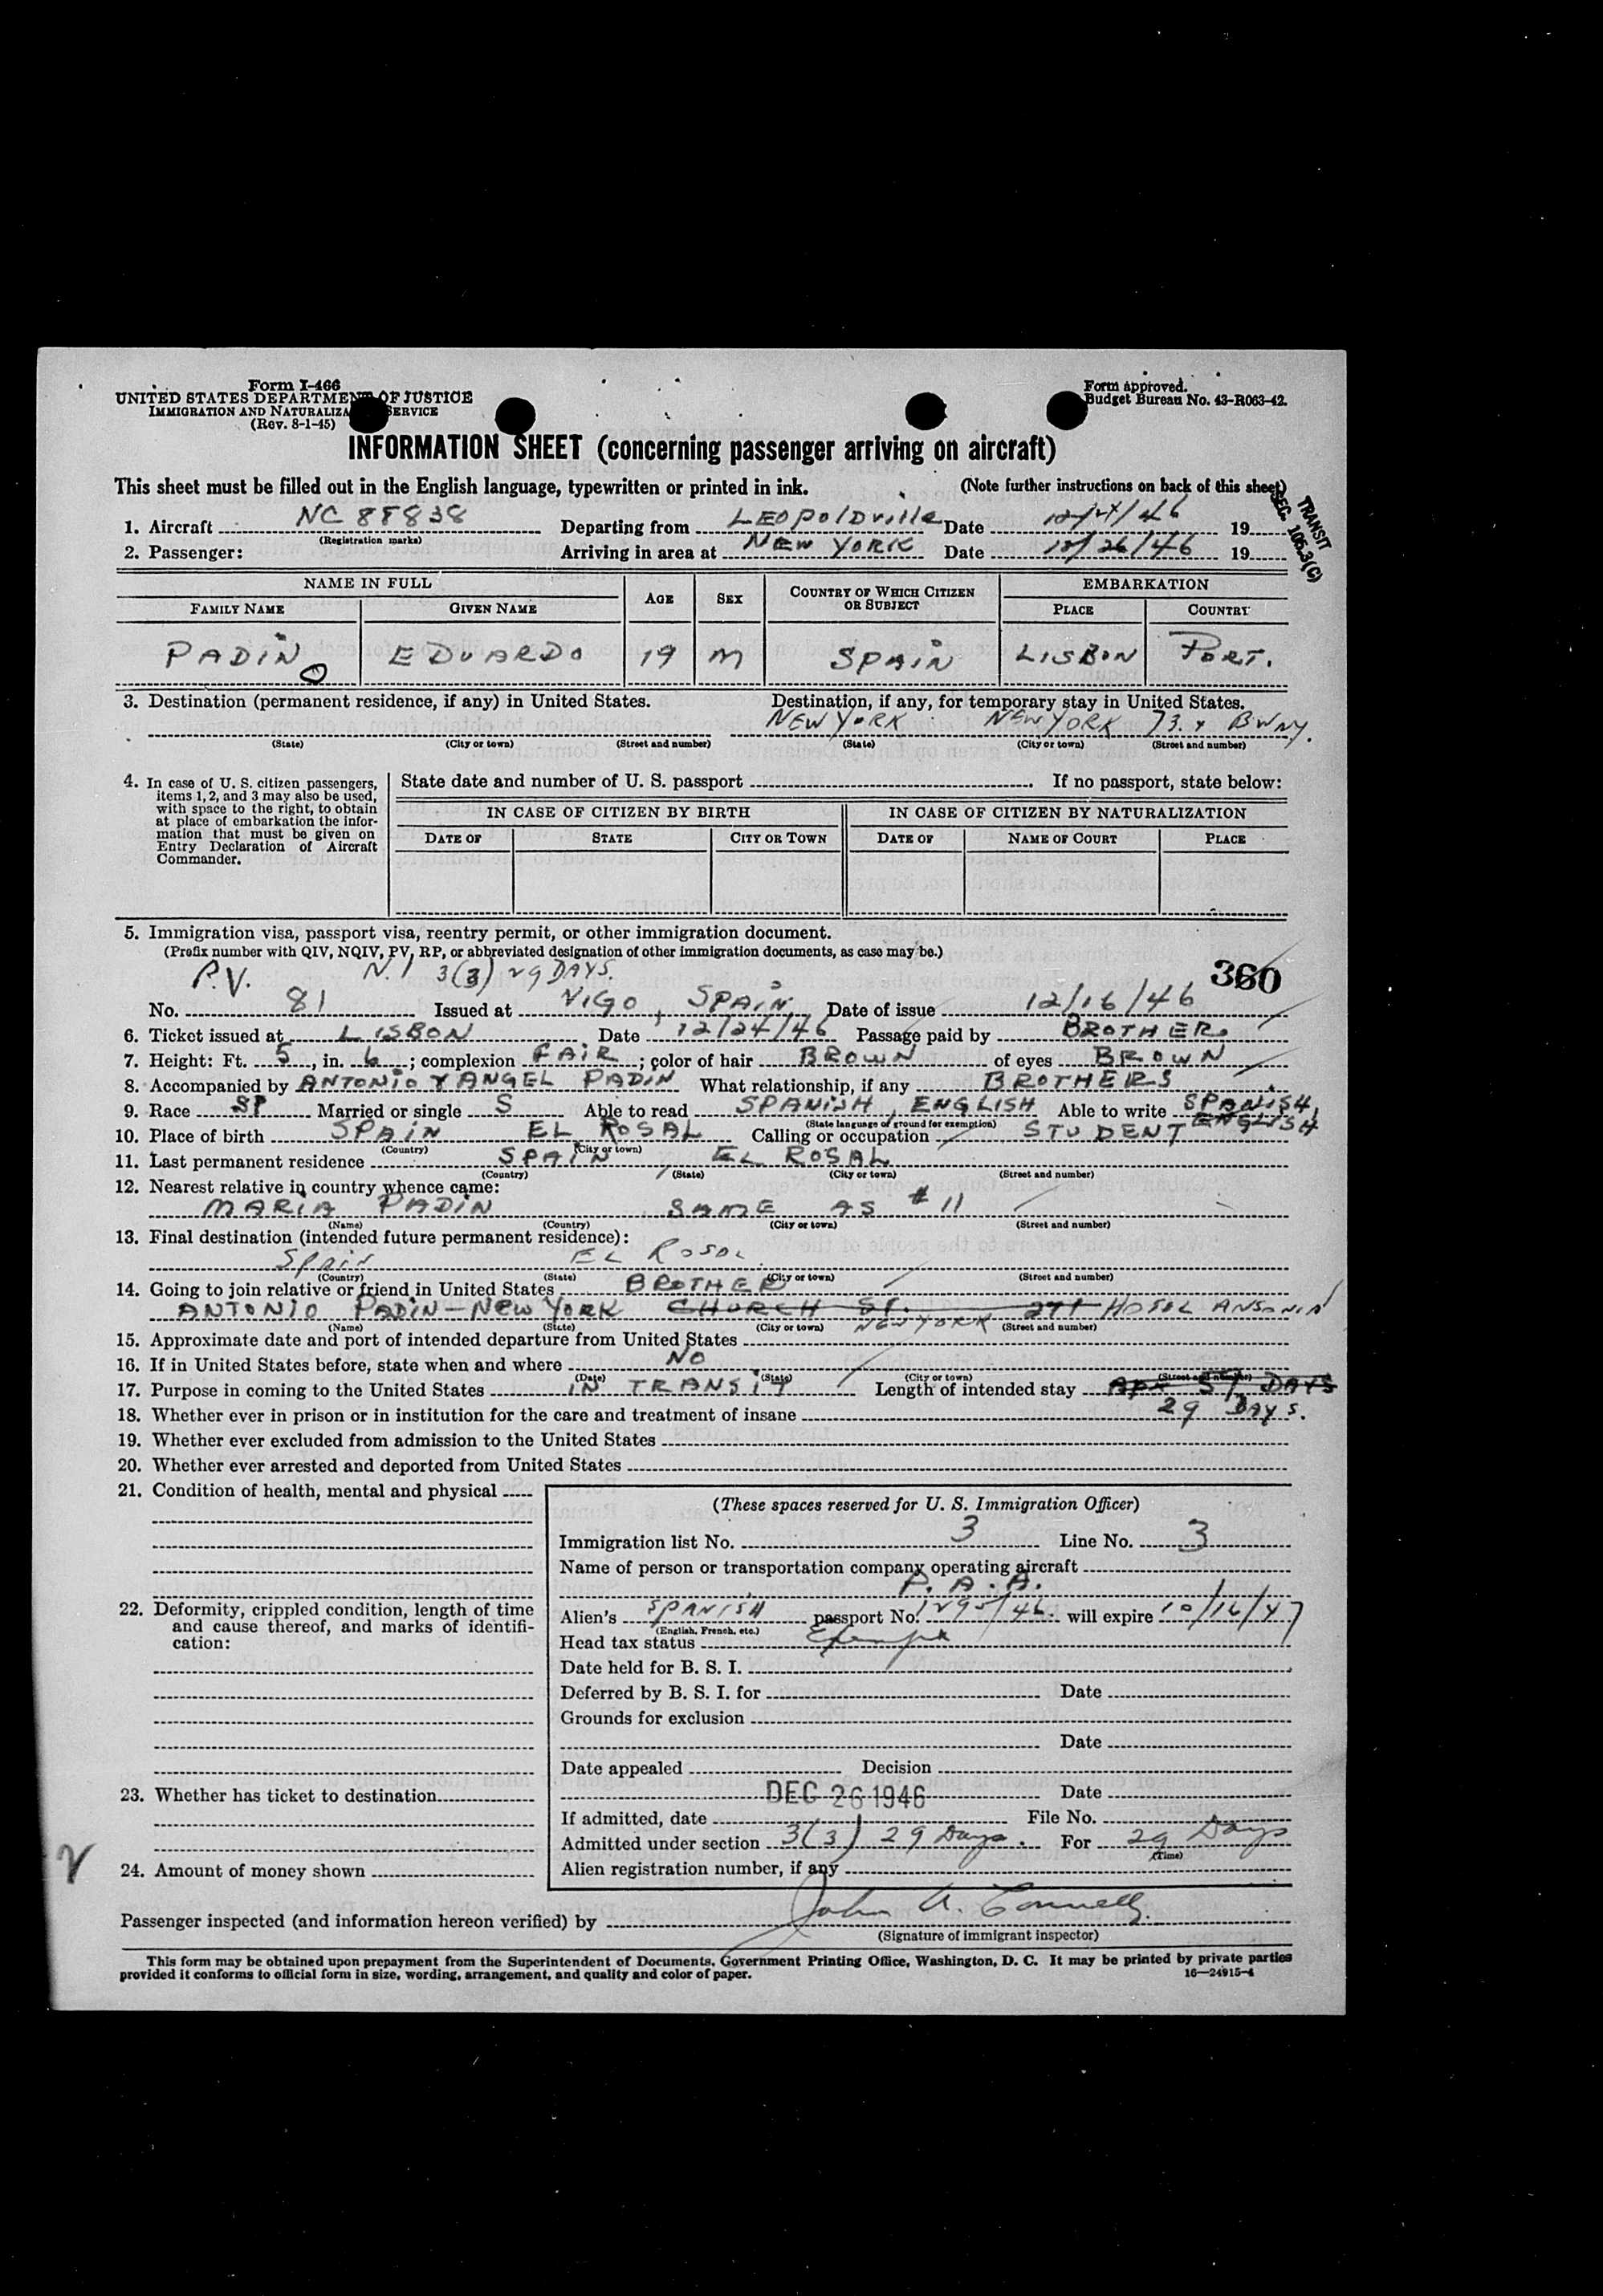 Form I-466
UNITED STATES DEPARTMENT OF JUSTICE
IMMIGRATION AND NATURALIZA SERVICE
(Rev. 8-1-45)
Form approved.
Budget Bureau No. 43-R063-42.
INFORMATION SHEET (concerning passenger arriving on aircraft)
This sheet must be filled out in the English language, typewritten or printed in ink. (Note further instructions on back of this sheet)
TRANSIT
SEC. 105.3(C)
1. Aircraft NC 88838 Departing from LEOPOLDVILLE Date 12/24/46 19
(Registration marks)
2. Passenger: Arriving in area at NEW YORK Date 12/26/46 19
NAME IN FULL AGE SEX COUNTRY OF WHICH CITIZEN OR SUBJECT EMBARKATION
FAMILY NAME GIVEN NAME PLACE COUNTRY
PADIN EDUARDO 19 M SPAIN LISBON PORT.
3. Destination (permanent residence, if any) in United States. Destination, if any, for temporary stay in United States.
NEW YORK NEW YORK 73. & BWNY.
(State) (City or town) (Street and number) (State) (City or town) (Street and number)
4. In case of U. S. citizen passengers, items 1, 2, and 3 may also be used, with space to the right, to obtain at place of embarkation the information that must be given on Entry Declaration of Aircraft Commander.
State date and number of U. S. passport If no passport, state below:
IN CASE OF CITIZEN BY BIRTH IN CASE OF CITIZEN BY NATURALIZATION
DATE OF STATE CITY OR TOWN DATE OF NAME OF COURT PLACE
5. Immigration visa, passport visa, reentry permit, or other immigration document.
(Prefix number with QIV, NQIV, PV, RP, or abbreviated designation of other immigration documents, as case may be.)
P.V. N.I 3(3) 29 DAYS. 360
No. 81 Issued at VIGO, SPAIN Date of issue 12/16/46
6. Ticket issued at LISBON Date 12/24/46 Passage paid by BROTHER.
7. Height: Ft. 5, in. 6; complexion FAIR; color of hair BROWN of eyes BROWN
8. Accompanied by ANTONIO Y ANGEL PADIN What relationship, if any BROTHERS
9. Race SP Married or single S Able to read SPANISH, ENGLISH Able to write SPANISH, ENGLISH
(State language or ground for exemption)
10. Place of birth SPAIN EL ROSAL Calling or occupation STUDENT
(Country) (City or town)
11. Last permanent residence SPAIN EL ROSAL
(Country) (State) (City or town) (Street and number)
12. Nearest relative in country whence came:
MARIA PADIN SAME AS #11
(Name) (Country) (City or town) (Street and number)
13. Final destination (intended future permanent residence):
SPAIN EL ROSAL
(Country) (State) (City or town) (Street and number)
14. Going to join relative or friend in United States BROTHER
ANTONIO PADIN-NEW YORK CHURCH ST. 271 HOTEL ANSONIA
NEW YORK
(Name) (State) (City or town) (Street and number)
15. Approximate date and port of intended departure from United States
16. If in United States before, state when and where NO
(Date) (State) (City or town) (Street and number)
17. Purpose in coming to the United States IN TRANSIT Length of intended stay APX 51 DAYS
29 DAYS.
18. Whether ever in prison or in institution for the care and treatment of insane
19. Whether ever excluded from admission to the United States
20. Whether ever arrested and deported from United States
21. Condition of health, mental and physical
22. Deformity, crippled condition, length of time and cause thereof, and marks of identification:
23. Whether has ticket to destination
24. Amount of money shown
(These spaces reserved for U. S. Immigration Officer)
Immigration list No. 3 Line No. 3
Name of person or transportation company operating aircraft
P. A. A.
Alien's SPANISH passport No. 1295/46. will expire 10/16/47
(English, French, etc.)
Head tax status Exempt
Date held for B. S. I.
Deferred by B. S. I. for Date
Grounds for exclusion
Date
Date appealed Decision
DEC 26 1946 Date
If admitted, date File No.
Admitted under section 3(3) 29 Days. For 29 Days
(Time)
Alien registration number, if any
Passenger inspected (and information hereon verified) by John A. Connelly
(Signature of immigrant inspector)
This form may be obtained upon prepayment from the Superintendent of Documents, Government Printing Office, Washington, D. C. It may be printed by private parties
provided it conforms to official form in size, wording, arrangement, and quality and color of paper. 16—24915-4